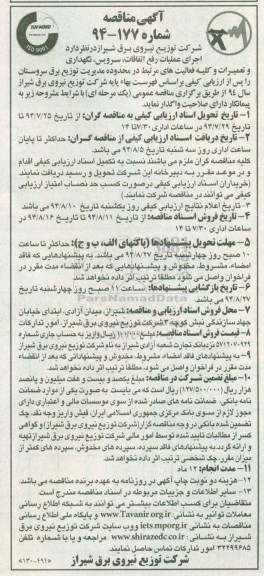 آگهی مناقصه
شماره ۱۷۷-۹۴
شرکت توزیع نیروی برق شیراز در نظر دارد
اجرای عملیات رفع اتفاقات، سرویس، نگهداری
و تعمیرات و کلیه فعالیت های مرتبط در محدوده مدیریت توزیع برق سروستان
را پس از ارزیابی کیفی براساس فهرست بهاء پایه شرکت توزیع نیروی برق شیراز
سال ۹۴ از طریق برگزاری مناقصه عمومی (یک مرحله ای) با شرایط مشروحه زیر به
پیمانکار دارای صلاحیت واگذار نماید.
۱- تاریخ تحویل اسناد ارزیابی کیفی به مناقصه گران: از تاریخ ۹۴/۷/۲۵ تا
تاریخ ۹۴/۷/۲۹ در ساعات اداری ۷/۳۰ الی ۱۴
۲- تاریخ دریافت اسناد ارزیابی کیفی از مناقصه گران: حداکثر تا پایان
ساعات اداری روز سه شنبه تاریخ ۹۴/۸/۵ می باشد.
کلیه مناقصه گران ملزم می باشند نسبت به تکمیل اسناد ارزیابی کیفی اقدام
و در موعد مقرر به دبیرخانه این شرکت تحویل و رسید دریافت نمایند.
(خریداران اسناد ارزیابی کیفی درصورت کسب حد نصاب امتیاز ارزیابی
کیفی می توانند در مناقصه شرکت نمایند)
۳- تاریخ اعلام نتایج ارزیابی کیفی روز یکشنبه تاریخ ۹۴/۸/۱۰ می باشد
۴- تاریخ فروش اسناد مناقصه: از تاریخ ۹۴/۸/۱۱ تا تاریخ ۹۴/۸/۱۶ در
ساعات اداری ۷:۳۰ تا ۱۴
۵- مهلت تحویل پیشنهادها (پاکتهای الف، ب و ج): حداکثر تا ساعت
۱۰ صبح روز چهارشنبه تاریخ ۹۴/۸/۲۷ می باشد. به پیشنهادهایی که فاقد
امضاء، مشروط، مخدوش و پیشنهادهایی که بعد از انقضاء مدت مقرر در
فراخوان واصل می شود مطلقا ترتیب اثر داده نخواهد شد.
۶- تاریخ بازگشایی پیشنهادها: ساعت ۱۱ صبح روز چهارشنبه تاریخ
۹۴/۸/۲۷ می باشد.
۷- محل فروش اسناد ارزیابی و مناقصه: شیراز، میدان آزادی، ابتدای خیابان
جهاد سازندگی نبش کوچه ۳ شرکت توزیع نیروی برق شیراز، امور تدارکات
۸- قیمت فروش اسناد مناقصه: مبلغ ریال واریز به حساب جاری شماره
۵۷۱۲۰۷۰۹۲۹ نزد بانک تجارت شعبه آزادی شیراز به نام شرکت توزیع نیروی برق شیراز
۹- به پیشنهادهای فاقد امضاء، مشروط، مخدوش و پیشنهاداتی که بعد از انقضاء
مدت مقرر در فراخوان واصل می شود، مطلقا ترتیب اثر داده نخواهد شد.
۱۰- مبلغ تضمین شرکت در مناقصه: مبلغ یکصد و بیست و هفت میلیون و پانصد
هزار ریال (۱۲۷/۵۰۰/۰۰۰) ریال است که می بایست به صورت یکی از موارد ضمانت
نامه بانکی، ضمانت نامه های صادر شده از سوی موسسات مالی و اعتباری دارای
مجوز لازم از سوی بانک مرکزی جمهوری اسلامی ایران، فیش واریز وجه نقد، چک
تضمین شده بانکی در وجه مناقصه گزار (شرکت توزیع نیروی برق شیراز) و گواهی
کسر از مطالبات تایید شده توسط امور مالی شرکت توزیع نیروی برق شیراز تهیه
و ارائه گردد. به پیشنهادهای فاقد سپرده، سپرده های مخدوش، سپرده های کمتر از
میزان مقرر، چک شخصی ترتیب اثر داده نخواهد شد.
۱۱- مدت انجام: ۱۲ ماه
۱۲- هزینه دو نوبت چاپ آگهی در روزنامه به عهده برنده مناقصه می باشد.
۱۳- سایر اطلاعات و جزییات مربوطه در اسناد مناقصه مندرج است.
متقاضیان برای کسب اطلاعات بیشتر می توانند به شبکه اطلاع رسانی
معاملات توانیر به نشانی www.Tavanir.org.ir و پایگاه ملی اطلاع رسانی
مناقصات به نشانی iets.mporg.ir وب سایت شرکت توزیع نیروی برق
شیراز به نشانی www.shirazedc.co.ir مراجعه و یا با شماره تلفن
۳۲۲۹۹۶۸۵ امور تدارکات تماس حاصل نمایند.
شرکت توزیع نیروی برق شیراز
ISO 9001
ParsNamadData